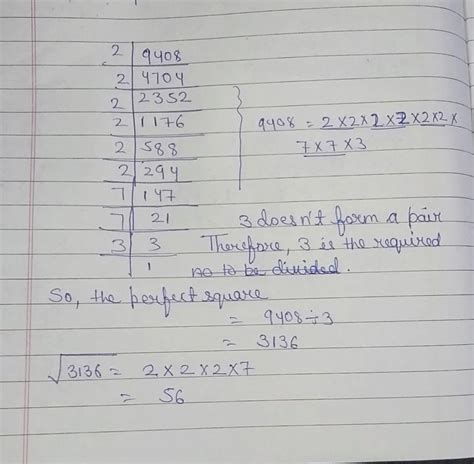 2 | 9408
2 | 4704
2 | 2352
2 | 1176
2 | 588
2 | 294
7 | 147
7 | 21
3 | 3
1
9408 = 2×2×2×2×2×2×
7×7×3
3 doesn't form a pair
Therefore, 3 is the required
no to be divided.
So, the perfect square
= 9408÷3
= 3136
√3136 = 2×2×2×7
= 56